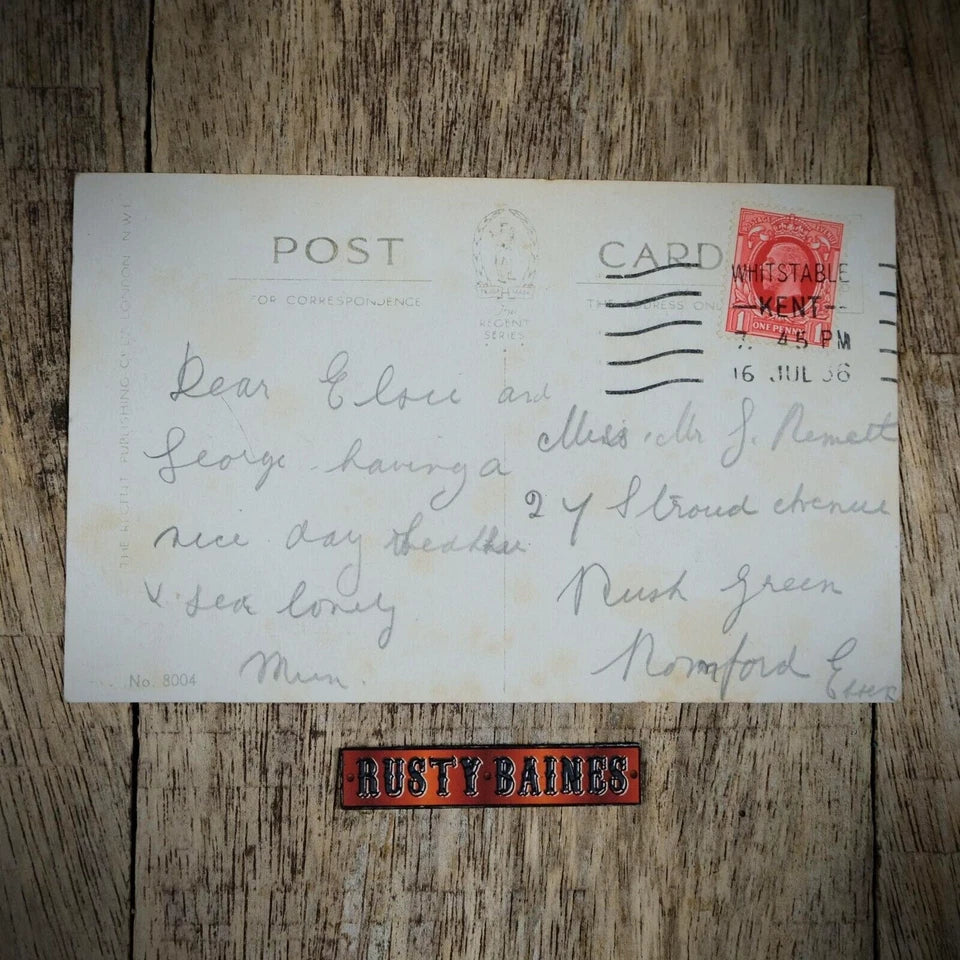 POST CARD
FOR CORRESPONDENCE
THE ADDRESS ONL
THE REGENT PUBLISHING CO LTD LONDON N.W.1
The
REGENT
SERIES
POSTAGE REVENUE
1 ONE PENNY 1
WHITSTABLE
KENT
7. 45 PM
16 JUL 36
Dear Elsie and
George having a
nice day weather
& sea lovely
Mum.
No. 8004
Miss Mr G.
27 Stroud Avenue
Rush Green
Romford Essex
RUSTY BAINES